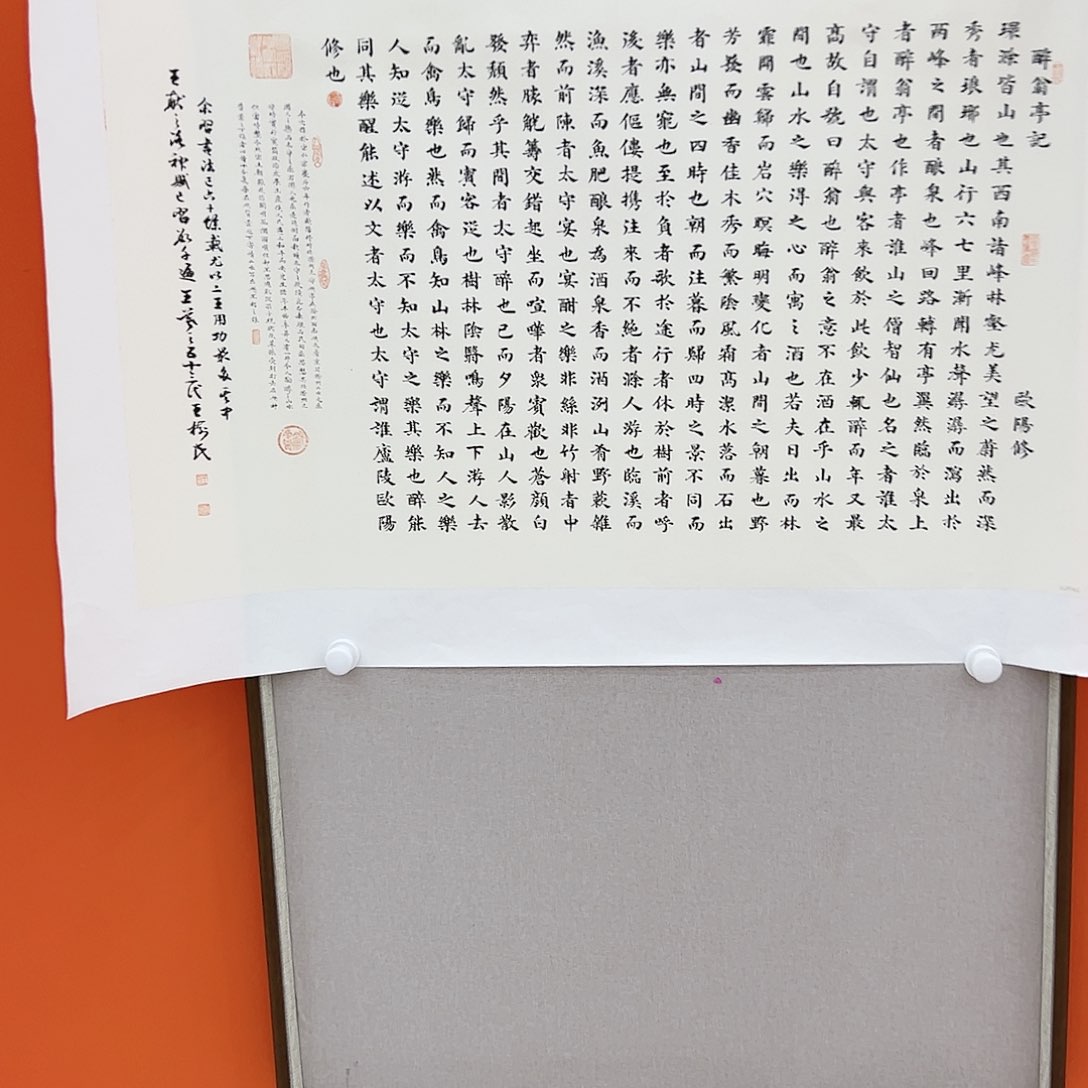 醉翁亭記 歐陽修
環滁皆山也其西南諸峰林壑尤美望之蔚然而深
秀者琅琊也山行六七里漸聞水聲潺潺而瀉出於
兩峰之間者釀泉也峰回路轉有亭翼然臨於泉上
者醉翁亭也作亭者誰山之僧智仙也名之者誰太
守自謂也太守與客來飲於此飲少輒醉而年又最
高故自號曰醉翁也醉翁之意不在酒在乎山水之
間也山水之樂得之心而寓之酒也若夫日出而林
霏開雲歸而岩穴暝晦明變化者山間之朝暮也野
芳發而幽香佳木秀而繁陰風霜高潔水落而石出
者山間之四時也朝而往暮而歸四時之景不同而
樂亦無窮也至於負者歌於途行者休於樹前者呼
後者應傴僂提攜往來而不絕者滁人游也臨溪而
漁溪深而魚肥釀泉為酒泉香而酒洌山肴野蔌雜
然而前陳者太守宴也宴酣之樂非絲非竹射者中
弈者勝觥籌交錯起坐而喧嘩者衆賓歡也蒼顏白
發頹然乎其間者太守醉也已而夕陽在山人影散
亂太守歸而賓客從也樹林陰翳鳴聲上下游人去
而禽鳥樂也然而禽鳥知山林之樂而不知人之樂
人知從太守游而樂而不知太守之樂其樂也醉能
同其樂醒能述以文者太守也太守謂誰廬陵歐陽
修也
余習書法已六十餘載尤以二王用功最多其中
王獻之洛神賦已習數千遍王羲之五十三代王樹民